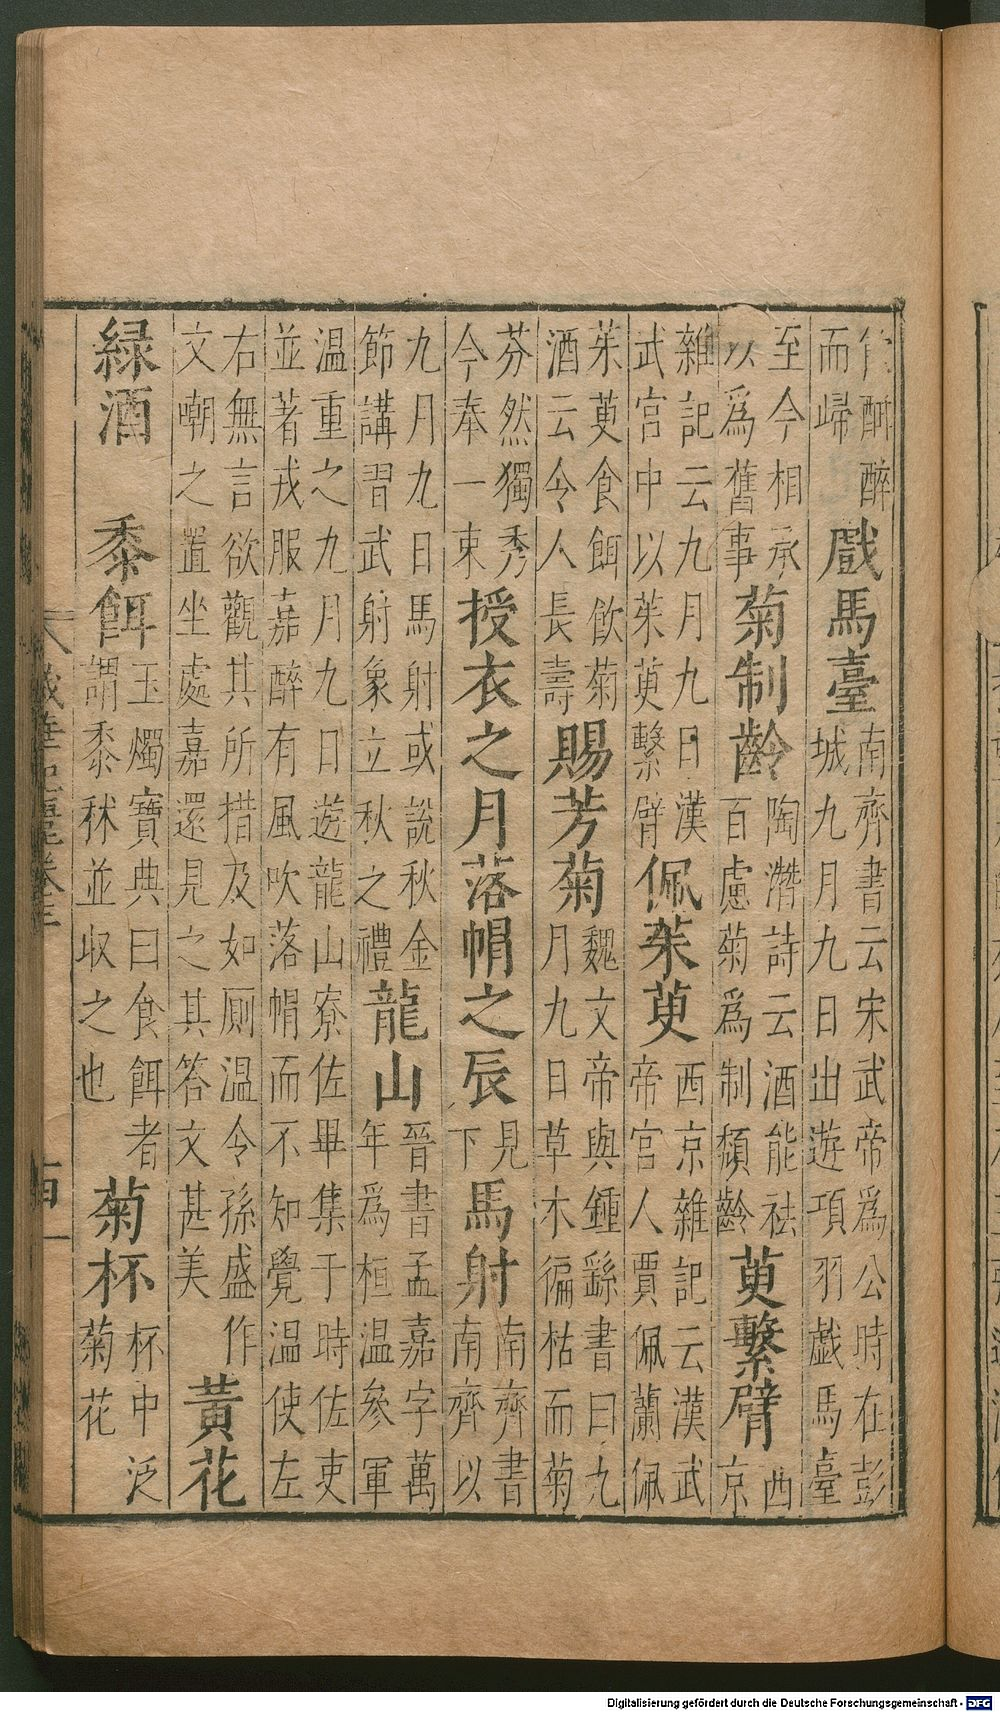 酣醉而歸 戲馬臺 南齊書云宋武帝爲公時在彭城九月九日出遊項羽戲馬臺
至今相承以爲舊事 菊制齡 陶潛詩云酒能祛百慮菊爲制頹齡 萸繫臂 西京
雜記云九月九日漢武宮中以茱萸繫臂 佩茱萸 西京雜記云漢武帝宮人賈佩蘭佩
茱萸食餌飲菊酒云令人長壽 賜芳菊 魏文帝與鍾繇書曰九月九日草木徧枯而菊
芬然獨秀今奉一束 授衣之月落帽之辰 見下 馬射 南齊書南齊以
九月九日馬射或說秋金節講習武射象立秋之禮 龍山 晉書孟嘉字萬年爲桓温參軍
温重之九月九日遊龍山寮佐畢集于時佐吏並著戎服嘉醉有風吹落帽而不知覺温使左
右無言欲觀其所措及如厠温令孫盛作文嘲之置坐處嘉還見之其答文甚美 黃花
緑酒 黍餌 玉燭寶典曰食餌者謂黍秫並収之也 菊杯 杯中泛菊花
歲華紀麗卷三
Digitalisierung gefördert durch die Deutsche Forschungsgemeinschaft - DFG